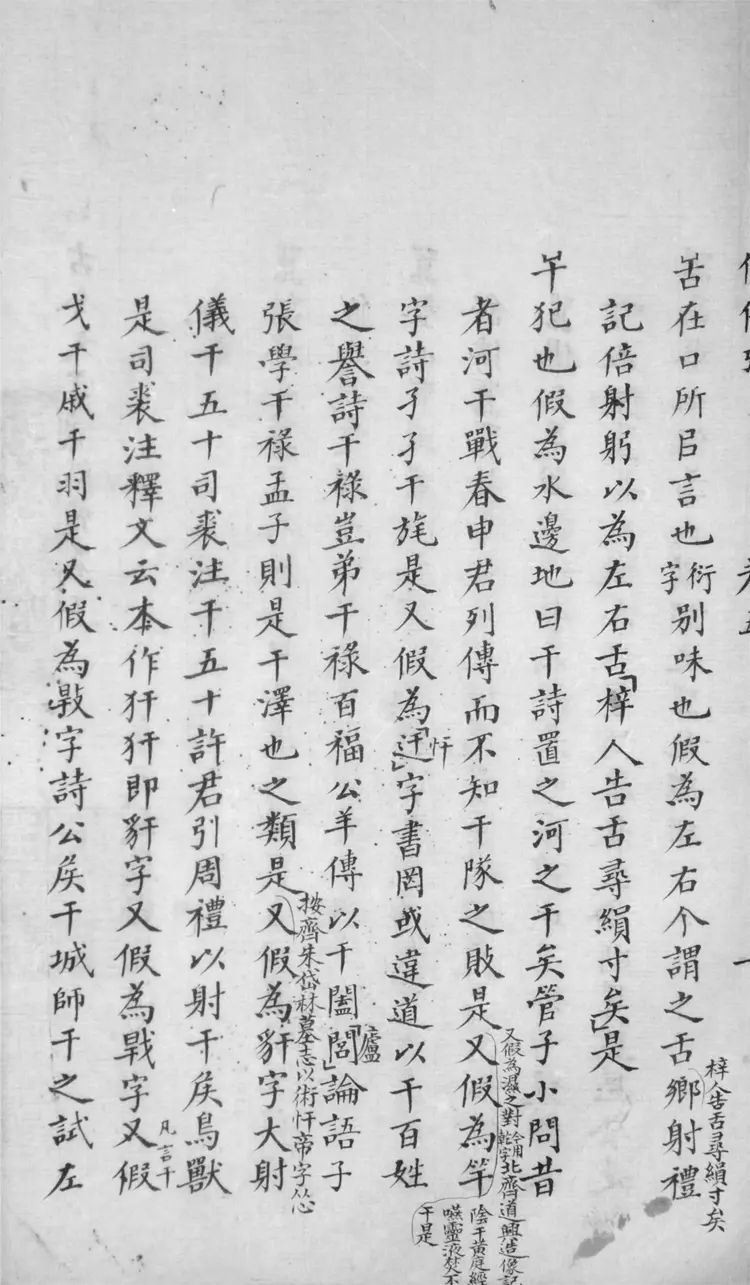 舌在口所㠯言也衍字别味也假為左右个謂之舌鄉射禮
梓人告舌尋縜寸矣
記倍射躬以為左右舌「梓人告舌尋縜寸矣」是
干犯也假為水邊地曰干詩置之河之干矣管子小問昔
者河干戰春申君列傳而不知干隊之敗是又假為竿
又假為濕之對今用乾字北齊道興造像記
陰干黄庭經
嚥靈液焚不
干是
字詩孑孑干旄是又假為「迀」忓字書罔或違道以干百姓
之譽詩干祿豈弟干祿百福公羊傳以干闔「閭」廬論語子
張學干祿孟子則是干澤也之類是又假為豻字大射
按齊朱岱林墓志以術忓帝字从忄
儀干五十司裘注干五十許君引周禮以射干矦鳥獸
是司裘注釋文云本作犴犴即豻字又假為戰字又假
凡言干
戈干戚干羽是又假為㪋字詩公矦干城師干之試左